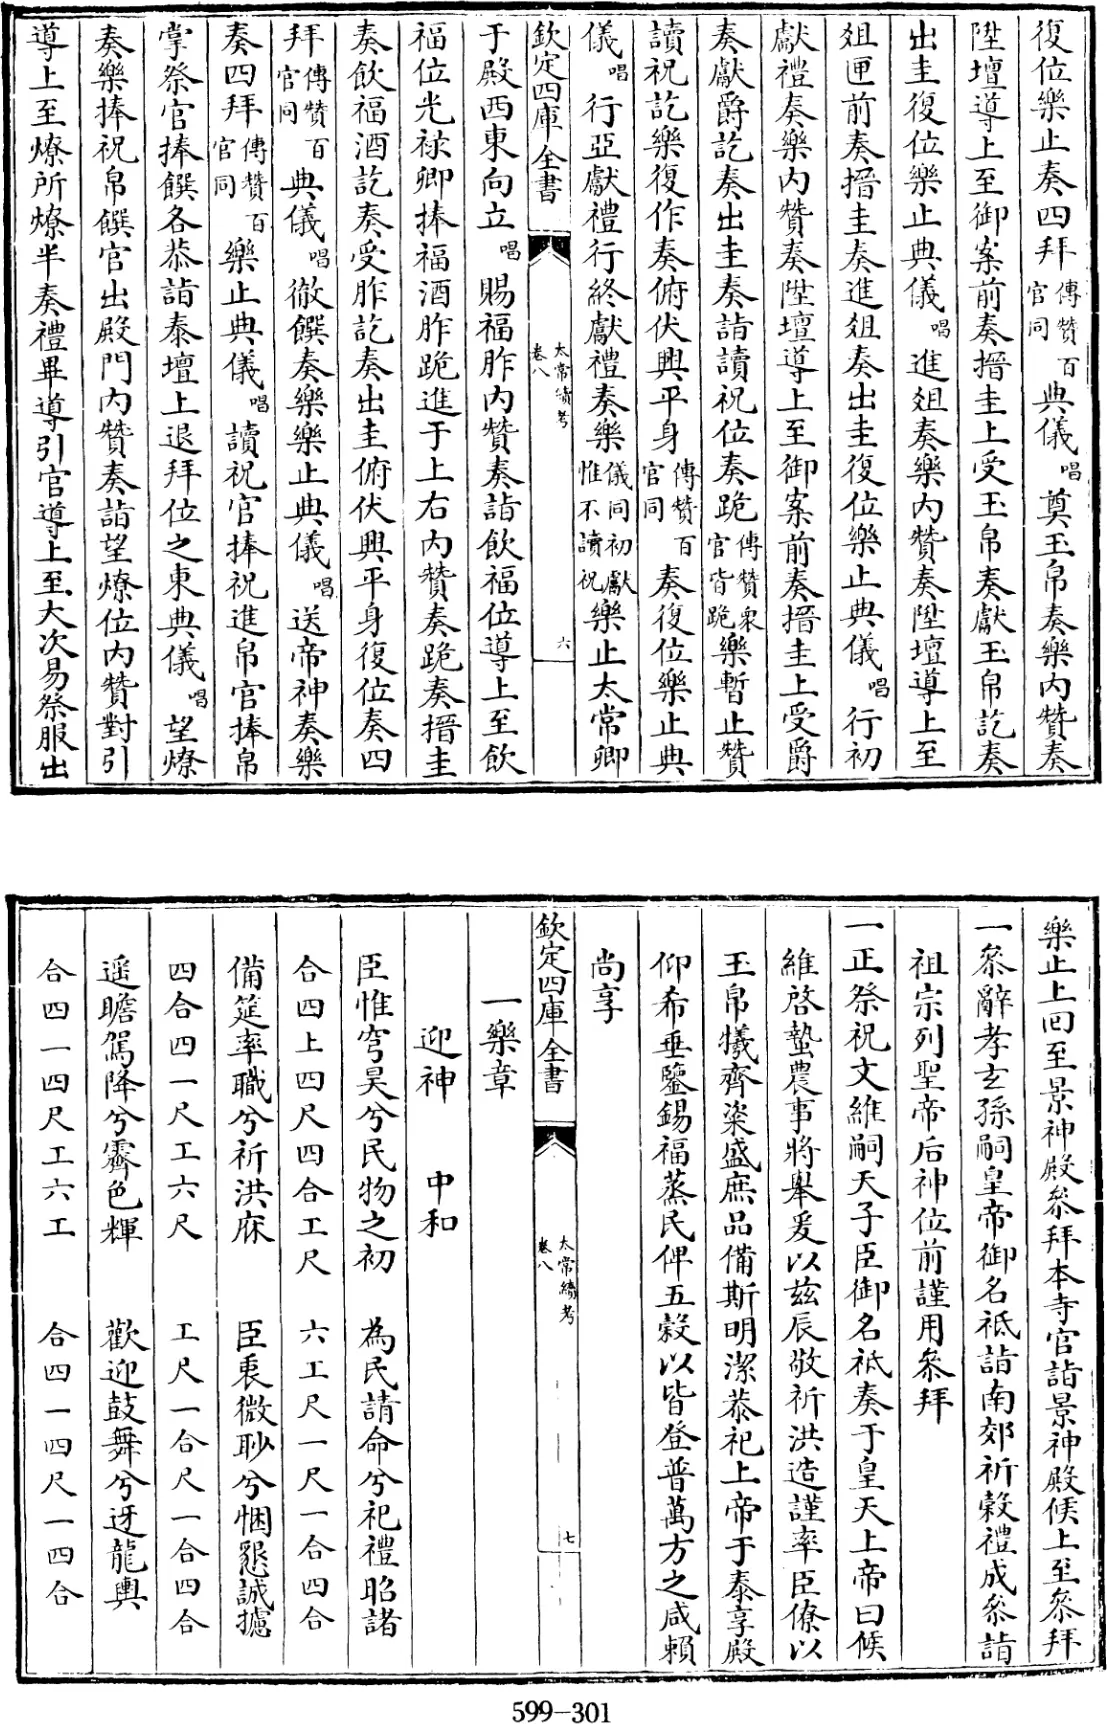 復位樂止奏四拜傳贊百官同典儀唱奠玉帛奏樂内贊奏
陞壇導上至御案前奏搢圭上受玉帛奏獻玉帛訖奏
出圭復位樂止典儀唱進俎奏樂内贊奏陞壇導上至
俎匣前奏搢圭奏進俎奏出圭復位樂止典儀唱行初
獻禮奏樂内贊奏陞壇導上至御案前奏搢圭上受爵
奏獻爵訖奏出圭奏詣讀祝位奏跪傳贊衆官皆跪樂暫止贊
讀祝訖樂復作奏俯伏興平身傳贊百官同奏復位樂止典
儀唱行亞獻禮行終獻禮奏樂儀同初獻惟不讀祝樂止太常卿
欽定四庫全書
太常續考
卷八
六
于殿西東向立唱賜福胙内贊奏詣飲福位導上至飲
福位光禄卿捧福酒胙跪進于上右内贊奏跪奏搢圭
奏飲福酒訖奏受胙訖奏出圭俯伏興平身復位奏四
拜傳贊百官同典儀唱徹饌奏樂樂止典儀唱送帝神奏樂
奏四拜傳贊百官同樂止典儀唱讀祝官捧祝進帛官捧帛
掌祭官捧饌各恭詣泰壇上退拜位之東典儀唱望燎
奏樂捧祝帛饌官出殿門内贊奏詣望燎位内贊對引
導上至燎所燎半奏禮畢導引官導上至大次易祭服出
樂止上回至景神殿叅拜本寺官詣景神殿候上至叅拜
一叅辭孝玄孫嗣皇帝御名祗詣南郊祈穀禮成叅詣
祖宗列聖帝后神位前謹用叅拜
一正祭祝文維嗣天子臣御名祗奏于皇天上帝曰候
維啓蟄農事將舉爰以兹辰敬祈洪造謹率臣僚以
玉帛犧齊粢盛庶品備斯明潔恭祀上帝于泰享殿
仰希垂鑒錫福蒸民俾五穀以皆登普萬方之咸賴
尚享
欽定四庫全書
太常續考
卷八
七
一樂章
迎神 中和
臣惟穹昊兮民物之初 為民請命兮祀禮昭諸
合四上四尺四合工尺 六工尺一尺一合四合
備筵率職兮祈洪庥 臣衷微眇兮悃懇誠攄
四合四一尺工六尺 工尺一合尺一合四合
遥瞻駕降兮霽色輝 歡迎鼓舞兮迓龍輿
合四一四尺工六工 合四一四尺一四合
599-301